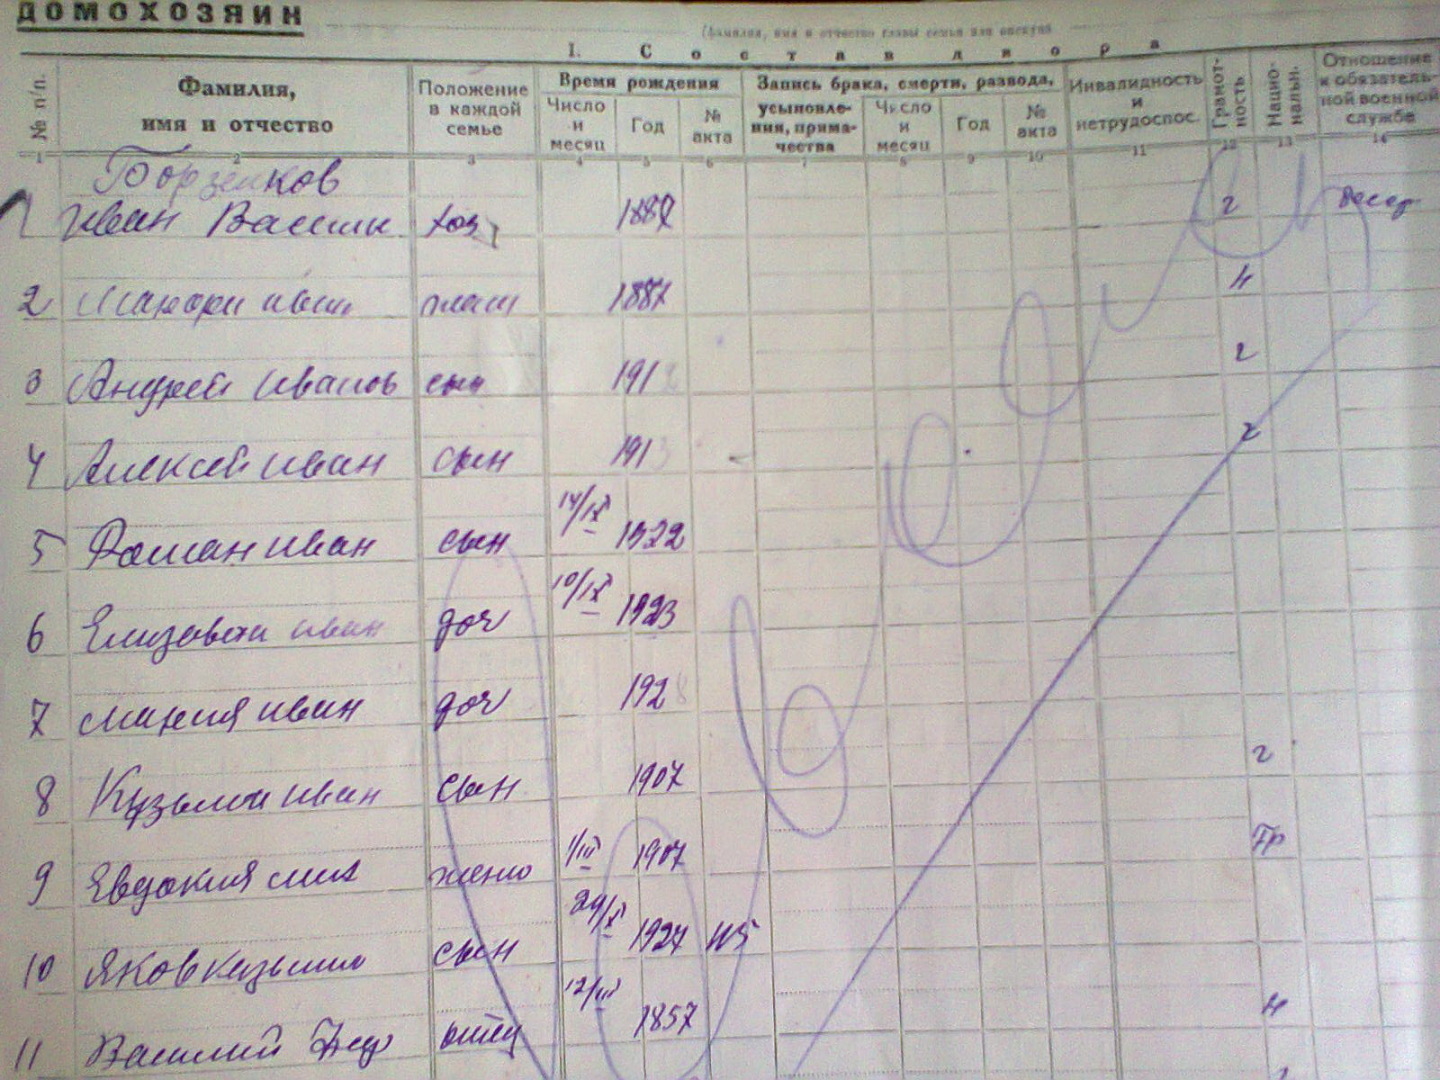 ДОМОХОЗЯИН
(фамилия, имя и отчество главы семьи или
I. Состав двора
№ п/п. Фамилия, имя и отчество Положение в каждой семье Время рождения Запись брака, смерти, развода, усыновления, примачества Инвалидность и нетрудоспос. Грамотность Национальн. Отношение к обязательной военной службе
Число и месяц Год № акта Число и месяц Год № акта
1 2 3 4 5 6 7 8 9 10 11 12 13 14
Борзенков
1 Иван Васили хоз 188 г
2 иван 1887 н
3 Андрей Иванов сын 191 г
4 Алексей Иван сын 1913 г
5 Роман Иван сын 14/IX 1922
6 Елизовета иван доч 10/IX 1923
7 Мария иван доч 1928
8 Кузьма иван сын 1907 г
9 Евдокия мих жена 1/III 1907 гр
10 Яков кузьмич сын 29/X 1927 №5
11 Василий отец 12/III 1857 н